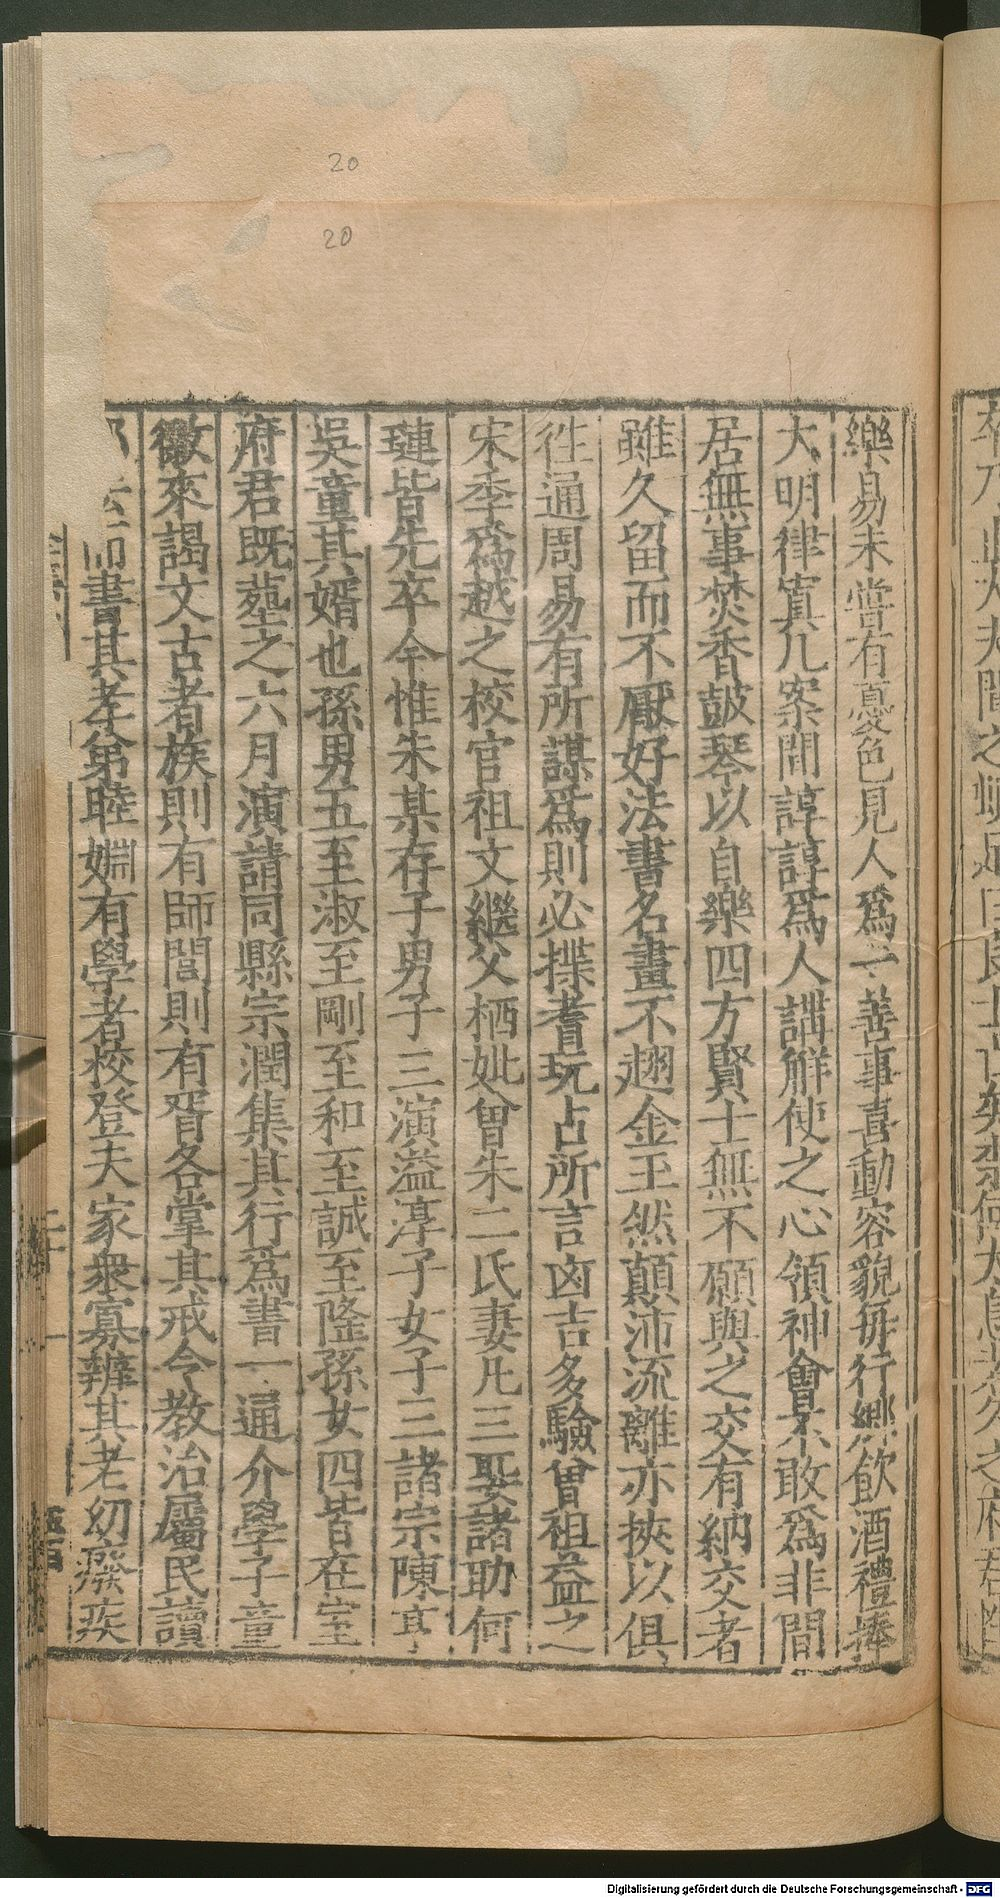 20
20
樂易未嘗有憂色見人爲一善事喜動容貌毎行鄉飲酒禮捧
大明律寘几案間諄諄爲人講解使之心領神會不敢爲非間
居無事焚香鼓琴以自樂四方賢士無不願與之交有納交者
雖久留而不厭好法書名畫不趐金玉然顛沛流離亦挾以俱
徃通周易有所謀爲則必揲蓍玩占所言凶吉多驗曾祖益之
宋季爲越之校官祖文繼父栖妣曾朱二氏妻凡三娶諸助何
璉皆先卒今惟朱某存子男子三演溢淳子女子三諸宗陳亨
吳童其婿也孫男五至淑至剛至和至誠至隆孫女四皆在室
府君既塟之六月演請同縣宗潤集其行爲書一通介學子童
徵來謁文古者族則有師閭則有胥各掌其戒令教治屬民讀
書其孝弟睦婣有學者校登夫家衆寡辨其老幼癈疾
Digitalisierung gefördert durch die Deutsche Forschungsgemeinschaft - DFG